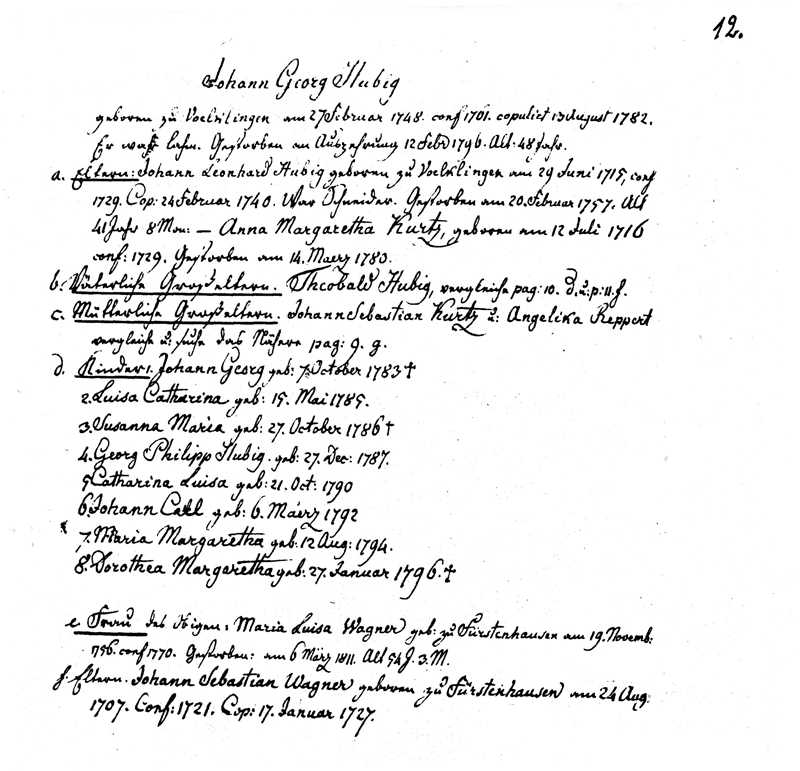 12.
Johann Georg Hubig
geboren zu Voelklingen am 27 Februar 1748. conf 1701. copulirt 13 August 1782.
Er war lahm. Gestorben an Auszehrung 12 Febr 1796. Alt. 48 Jahr.
a. Eltern: Johann Leonhard Hubig geboren zu Voelklingen am 29 Juni 1715, conf
1729. Cop: 24 Februar 1740. War Schneider. Gestorben am 20. Februar 1757. Alt
41 Jahr 8 Mon: — Anna Margaretha Kurtz, geboren am 12 Juli 1716
conf: 1729. Gestorben am 14. Maerz 1780.
b. Väterliche Großeltern. Theobald Hubig, vergleiche pag: 10. d. u. p: 11. f.
c. Mütterliche Großeltern. Johann Sebastian Kurtz u: Angelika Reppert
vergleiche u: suche das Nähere pag: 9. g.
d. Kinder 1. Johann Georg geb: 7. October 1783 †
2. Luisa Catharina geb: 15. Mai 1785.
3. Susanna Maria geb: 27. October 1786 †
4. Georg Philipp Hubig. geb: 27. Dec: 1787.
5 Catharina Luisa geb: 21. Oct: 1790
6. Johann Carl geb: 6. Maerz 1792
7. Maria Margaretha geb: 12 Aug: 1794.
8. Dorothea Margaretha geb: 27. Januar 1796. †
e Frau des Obigen: Maria Luisa Wagner geb: zu Fürstenhausen am 19. Novemb:
1756. conf 1770. Gestorben: am 6 März 1811. Alt 54 J. 3. M.
f. Eltern. Johann Sebastian Wagner geboren zu Fürstenhausen am 24 Aug:
1707. Conf: 1721. Cop: 17. Januar 1727.